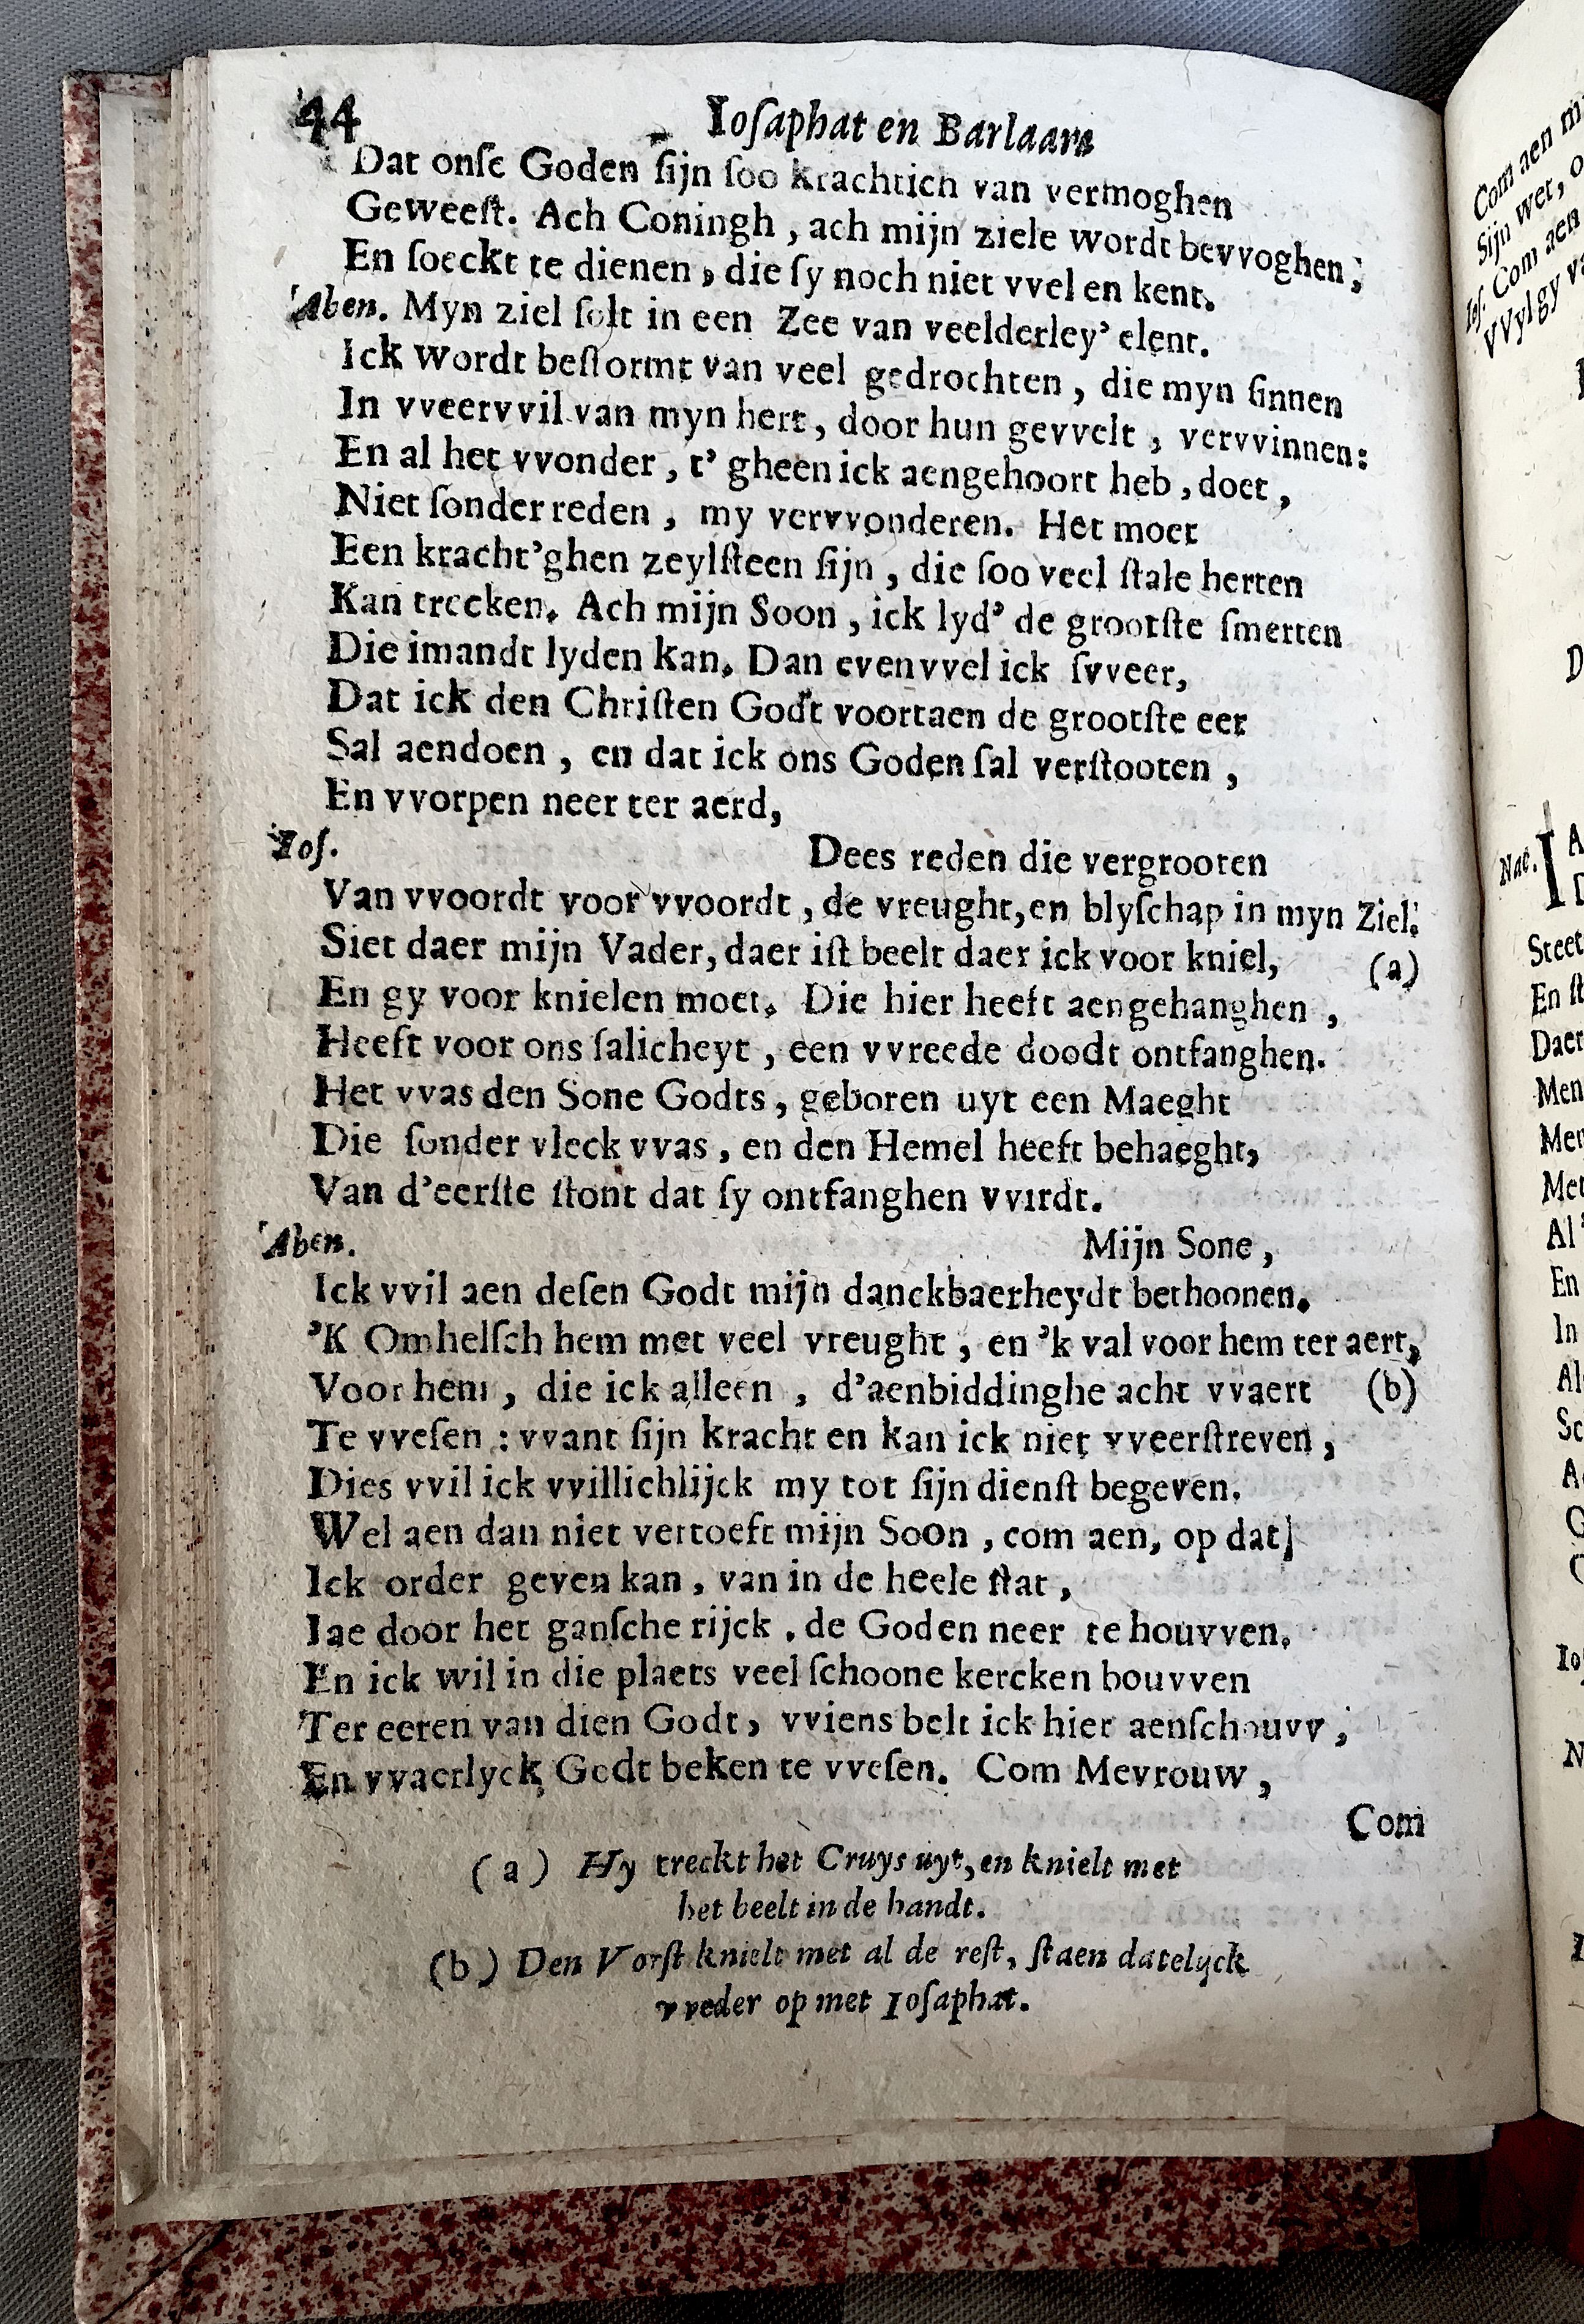 44 Ioſaphat en Barlaam
Dat onſe Goden ſijn ſoo krachtich van vermoghen
Geweeſt. Ach Coningh, ach mijn ziele wordt bevvoghen,
En ſoeckt te dienen, die ſy noch niet vvel en kent.
Aben. Myn ziel ſolt in een Zee van veelderley' elent.
Ick wordt beſtormt van veel gedrochten, die myn ſinnen
In vveervvil van myn hert, door hun gevvelt, vervvinnen:
En al het vvonder, t' gheen ick aengehoort heb, doet,
Niet ſonder reden, my vervvonderen. Het moet
Een kracht'ghen zeylſteen ſijn, die ſoo veel ſtale herten
Kan trecken. Ach mijn Soon, ick lyd' de grootſte ſmerten
Die imandt lyden kan. Dan evenvvel ick ſvveer,
Dat ick den Chriſten Godt voortaen de grootſte eer
Sal aendoen, en dat ick ons Goden ſal verſtooten,
En vvorpen neer ter aerd,
Ioſ. Dees reden die vergrooten
Van vvoordt voor vvoordt, de vreught, en blyſchap in myn Ziel.
Siet daer mijn Vader, daer iſt beelt daer ick voor kniel, (a)
En gy voor knielen moet. Die hier heeft aengehanghen,
Heeft voor ons ſalicheyt, een vvreede doodt ontfanghen.
Het vvas den Sone Godts, geboren uyt een Maeght
Die ſonder vleck vvas, en den Hemel heeft behaeght,
Van d'eerſte ſtont dat ſy ontfanghen vvirdt.
Aben. Mijn Sone,
Ick vvil aen deſen Godt mijn danckbaerheydt bethoonen.
'K Omhelſch hem met veel vreught, en 'k val voor hem ter aert,
Voor hem, die ick alleen, d'aenbiddinghe acht vvaert (b)
Te vveſen: vvant ſijn kracht en kan ick niet vveerſtreven,
Dies vvil ick vvillichlijck my tot ſijn dienſt begeven.
Wel aen dan niet vertoeft mijn Soon, com aen, op dat
Ick order geven kan, van in de heele ſtat,
Iae door het ganſche rijck, de Goden neer te houvven,
En ick wil in die plaets veel ſchoone kercken bouvven
Ter eeren van dien Godt, vviens belt ick hier aenſchouvv,
En vvaerlyck Godt beken te vveſen. Com Mevrouw,
Com
(a) Hy treckt het Cruys uyt, en knielt met
het beelt in de handt.
(b) Den Vorſt knielt met al de reſt, ſtaen datelyck
vveder op met Ioſaphat.